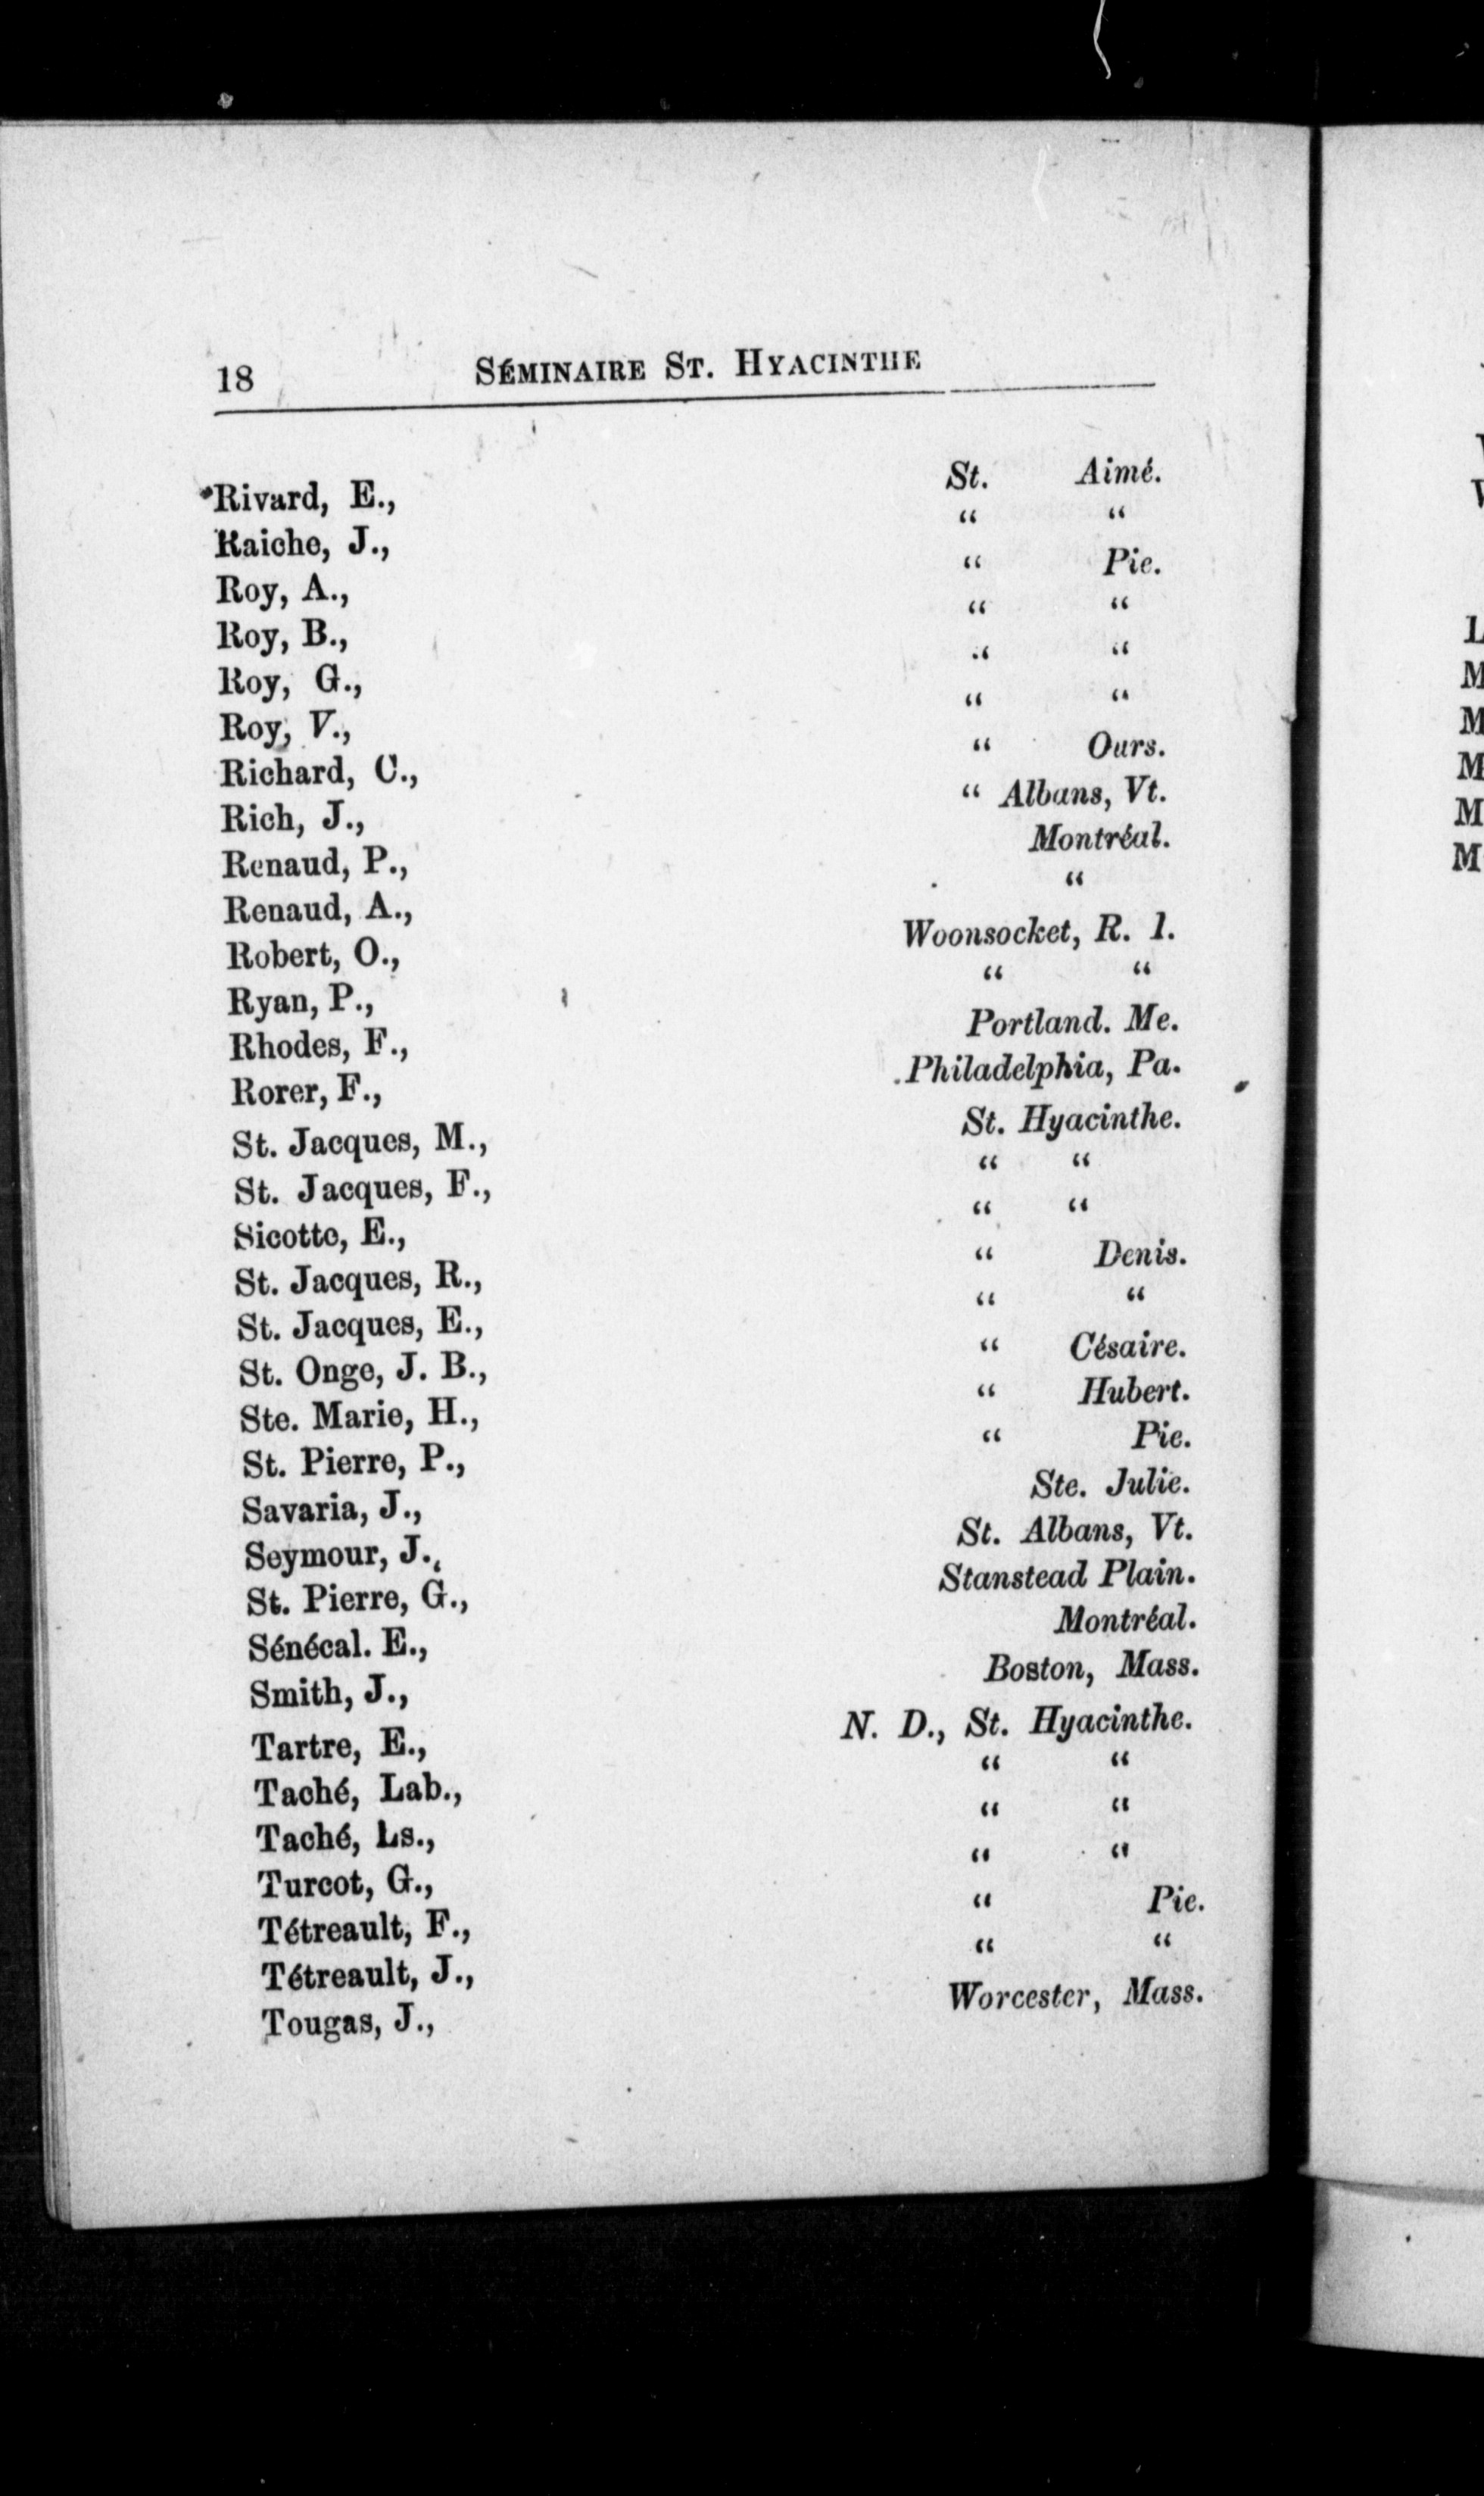 18 SÉMINAIRE ST. HYACINTHE
Rivard, E., St. Aimé.
Raiche, J., “ “
Roy, A., “ Pie.
Roy, B., “ “
Roy, G., “ “
Roy, V., “ “
Richard, C., “ Ours.
Rich, J., “ Albans, Vt.
Renaud, P., Montréal.
Renaud, A., “
Robert, O., Woonsocket, R. I.
Ryan, P., “ “
Rhodes, F., Portland. Me.
Rorer, F., Philadelphia, Pa.
St. Jacques, M., St. Hyacinthe.
St. Jacques, F., “ “
Sicotte, E., “ “
St. Jacques, R., “ Denis.
St. Jacques, E., “ “
St. Onge, J. B., “ Césaire.
Ste. Marie, H., “ Hubert.
St. Pierre, P., “ Pie.
Savaria, J., Ste. Julie.
Seymour, J., St. Albans, Vt.
St. Pierre, G., Stanstead Plain.
Sénécal. E., Montréal.
Smith, J., Boston, Mass.
Tartre, E., N. D., St. Hyacinthe.
Taché, Lab., “ “
Taché, Ls., “ “
Turcot, G., “ “
Tétreault, F., “ Pie.
Tétreault, J., “ “
Tougas, J., Worcester, Mass.